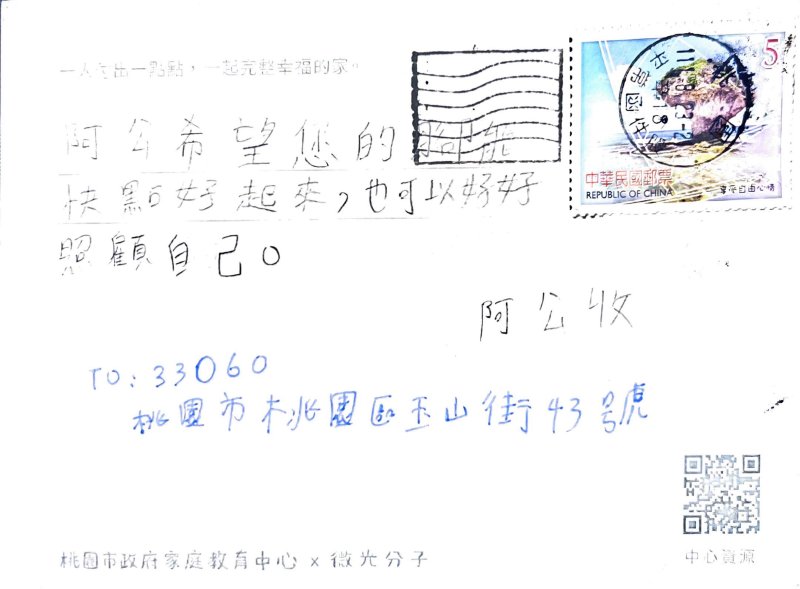 一人付出一點點,一起完整幸福的家。
阿公希望您的腳能
快點好起來,也可以好好
照顧自己。
阿公收
TO:33060
桃園市桃園區玉山街43號
5
中華民國郵票
REPUBLIC OF CHINA
中心資源
桃園市政府家庭教育中心 x 微光分子